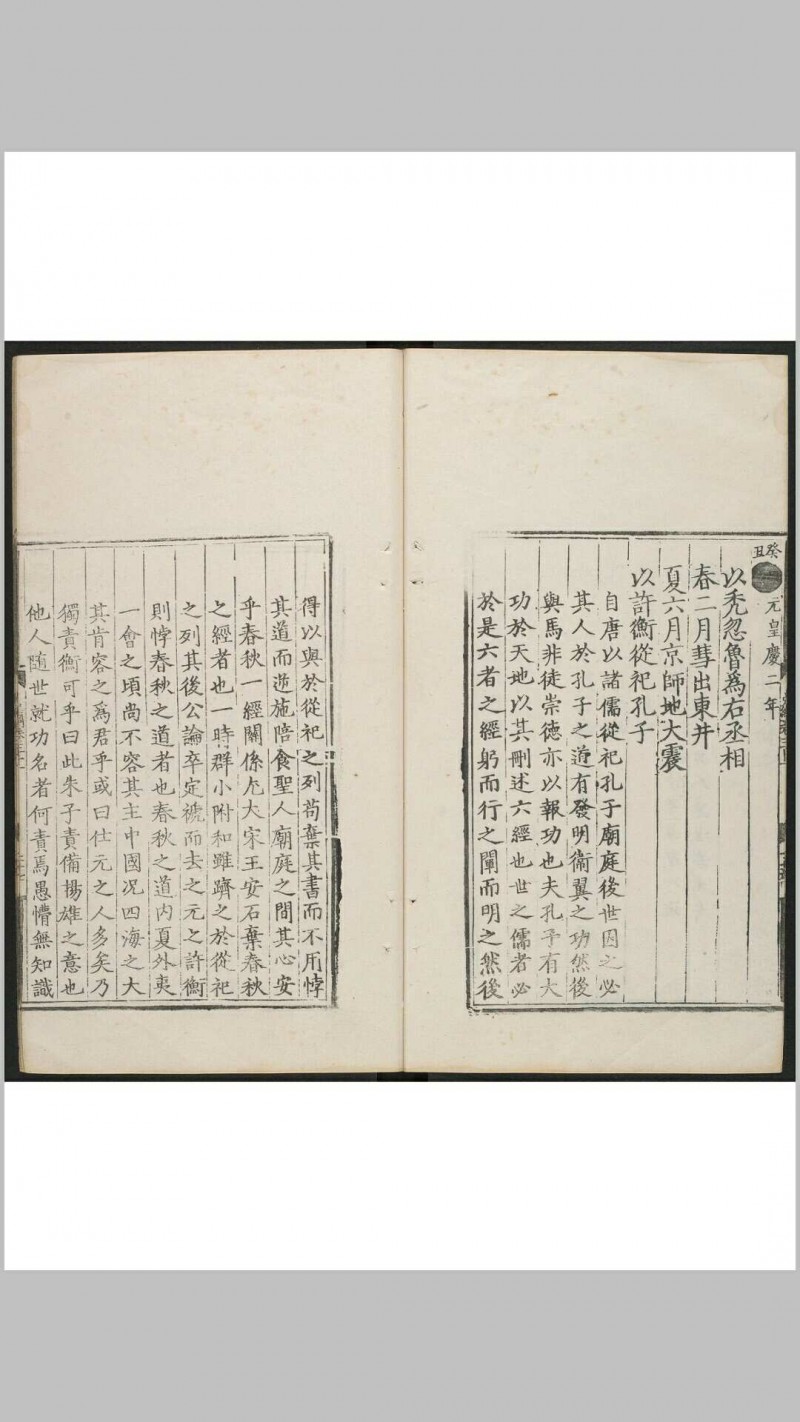 癸丑
元皇慶二年
以禿忽魯為右丞相
春二月彗出東井
夏六月京師地大震
以許衡從祀孔子
自唐以諸儒從祀孔子廟庭後世因之必
其人於孔子之道有發明衞翼之功然後
與焉非徒崇德亦以報功也夫孔子有大
功於天地以其刪述六經也世之儒者必
於是六者之經躬而行之闡而明之然後
得以與於從祀之列苟棄其書而不用悖
其道而逆施陪食聖人廟庭之間其心安
乎春秋一經關係尤大宋王安石棄春秋
之經者也一時群小附和雖躋之於從祀
之列其後公論卒定褫而去之元之許衡
則悖春秋之道者也春秋之道內夏外夷
一會之頃尚不容其主中國况四海之大
其肯容之為君乎或曰仕元之人多矣乃
獨責衡可乎曰此朱子責備揚雄之意也
他人隨世就功名者何責焉愚懵無知識